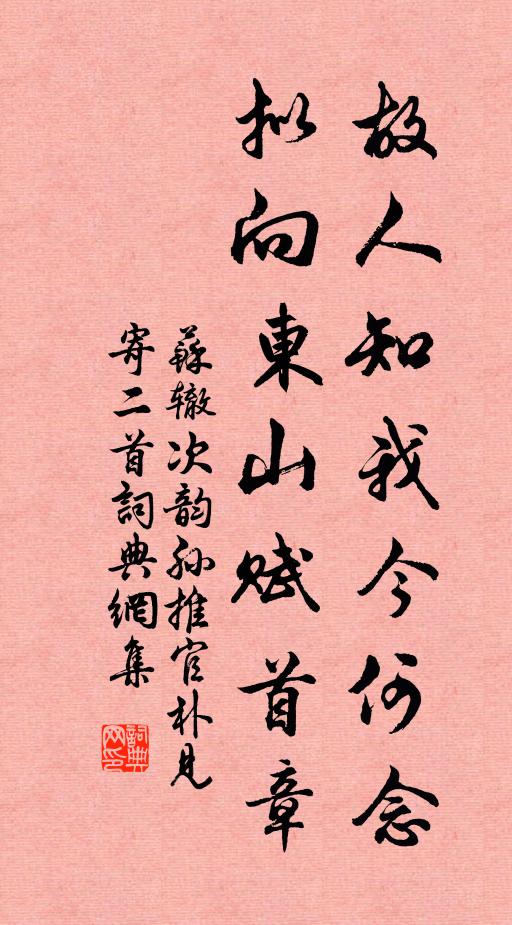 故人知我今何念
拟向東山赋首章
蘇辙次韵孙推官朴見
寄二首詞典網集
詞典
网印